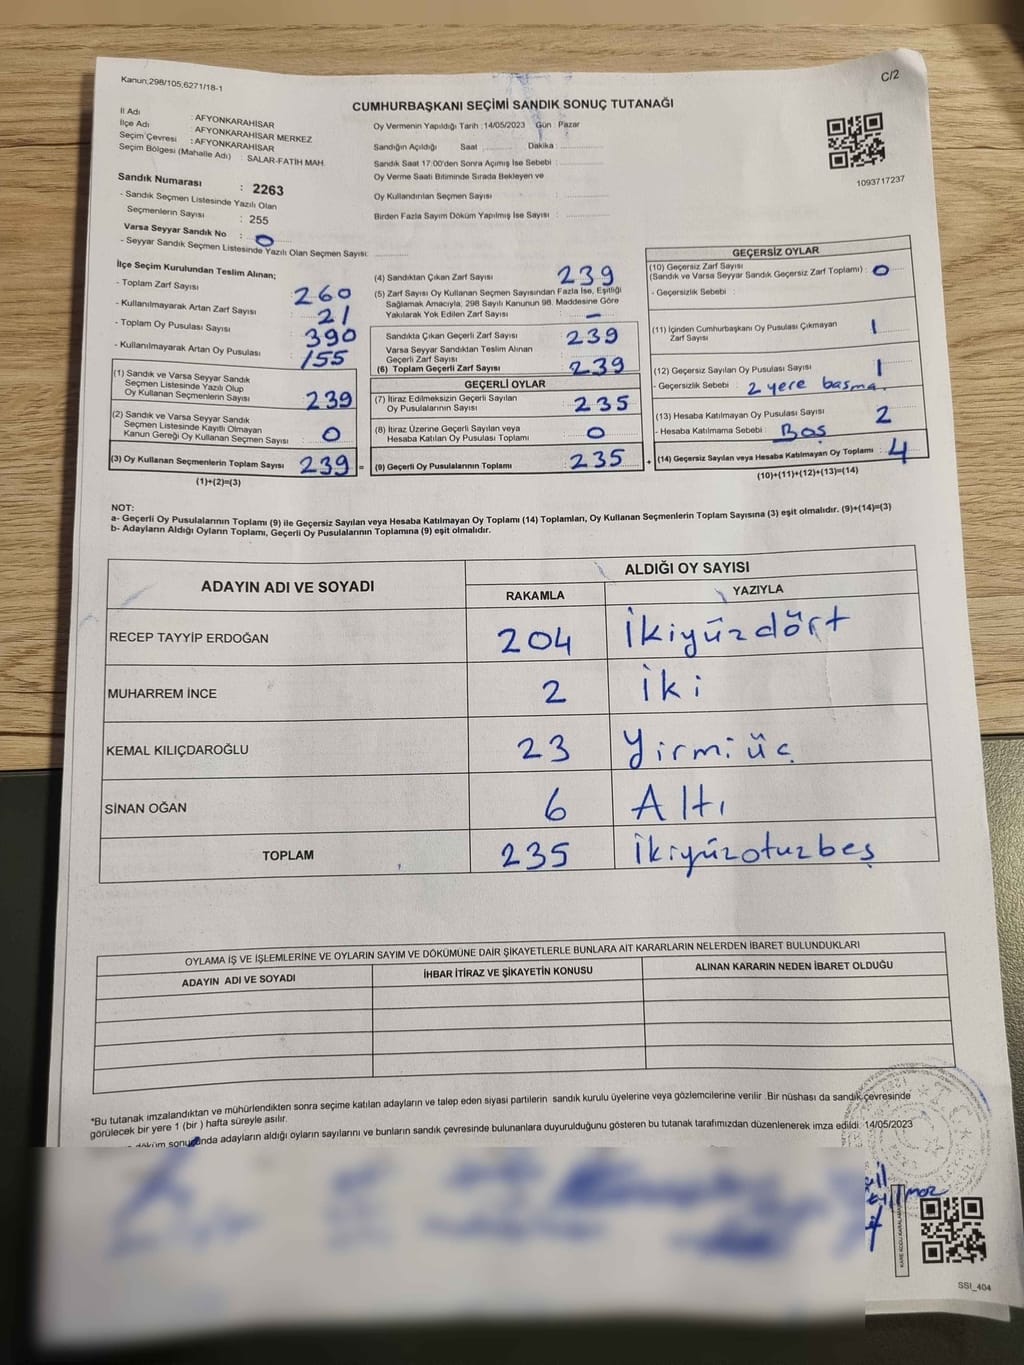 Kanun;298/105,6271/18-1
C/2
CUMHURBAŞKANI SEÇİMİ SANDIK SONUÇ TUTANAĞI
İl Adı : AFYONKARAHİSAR
İlçe Adı : AFYONKARAHİSAR MERKEZ
Seçim Çevresi : AFYONKARAHİSAR
Seçim Bölgesi (Mahalle Adı) : SALAR-FATİH MAH.
Sandık Numarası : 2263
- Sandık Seçmen Listesinde Yazılı Olan
Seçmenlerin Sayısı : 255
Varsa Seyyar Sandık No : 0
- Seyyar Sandık Seçmen Listesinde Yazılı Olan Seçmen Sayısı:
Oy Vermenin Yapıldığı Tarih : 14/05/2023 Gün : Pazar
Sandığın Açıldığı Saat Dakika
Sandık Saat 17.00'den Sonra Açımış İse Sebebi :
Oy Verme Saati Bitiminde Sırada Bekleyen ve
Oy Kullandırılan Seçmen Sayısı :
Birden Fazla Sayım Döküm Yapılmış İse Sayısı :
1093717237
İlçe Seçim Kurulundan Teslim Alınan;
- Toplam Zarf Sayısı : 260
- Kullanılmayarak Artan Zarf Sayısı : 21
- Toplam Oy Pusulası Sayısı : 390
- Kullanılmayarak Artan Oy Pusulası : 155
(1) Sandık ve Varsa Seyyar Sandık
Seçmen Listesinde Yazılı Olup
Oy Kullanan Seçmenlerin Sayısı : 239
(2) Sandık ve Varsa Seyyar Sandık
Seçmen Listesinde Kayıtlı Olmayan
Kanun Gereği Oy Kullanan Seçmen Sayısı : 0
(3) Oy Kullanan Seçmenlerin Toplam Sayısı : 239 =
(1)+(2)=(3)
(4) Sandıktan Çıkan Zarf Sayısı : 239
(5) Zarf Sayısı Oy Kullanan Seçmen Sayısından Fazla İse, Eşitliği
Sağlamak Amacıyla, 298 Sayılı Kanunun 98. Maddesine Göre
Yakılarak Yok Edilen Zarf Sayısı : -
Sandıkta Çıkan Geçerli Zarf Sayısı : 239
Varsa Seyyar Sandıktan Teslim Alınan
Geçerli Zarf Sayısı
(6) Toplam Geçerli Zarf Sayısı : 239
GEÇERLİ OYLAR
(7) İtiraz Edilmeksizin Geçerli Sayılan
Oy Pusulalarının Sayısı : 235
(8) İtiraz Üzerine Geçerli Sayılan veya
Hesaba Katılan Oy Pusulası Toplamı : 0
(9) Geçerli Oy Pusulalarının Toplamı : 235 +
GEÇERSİZ OYLAR
(10) Geçersiz Zarf Sayısı
(Sandık ve Varsa Seyyar Sandık Geçersiz Zarf Toplamı) : 0
- Geçersizlik Sebebi :
(11) İçinden Cumhurbaşkanı Oy Pusulası Çıkmayan
Zarf Sayısı : 1
(12) Geçersiz Sayılan Oy Pusulası Sayısı : 1
- Geçersizlik Sebebi : 2 yere basma.
(13) Hesaba Katılmayan Oy Pusulası Sayısı : 2
- Hesaba Katılmama Sebebi : Boş
(14) Geçersiz Sayılan veya Hesaba Katılmayan Oy Toplamı : 4
(10)+(11)+(12)+(13)=(14)
NOT:
a- Geçerli Oy Pusulalarının Toplamı (9) ile Geçersiz Sayılan veya Hesaba Katılmayan Oy Toplamı (14) Toplamları, Oy Kullanan Seçmenlerin Toplam Sayısına (3) eşit olmalıdır. (9)+(14)=(3)
b- Adayların Aldığı Oyların Toplamı, Geçerli Oy Pusulalarının Toplamına (9) eşit olmalıdır.
ADAYIN ADI VE SOYADI
ALDIĞI OY SAYISI
RAKAMLA YAZIYLA
RECEP TAYYİP ERDOĞAN 204 İkiyüzdört
MUHARREM İNCE 2 iki
KEMAL KILIÇDAROĞLU 23 Yirmiüç
SİNAN OĞAN 6 Altı
TOPLAM 235 İkiyüzotuzbeş
OYLAMA İŞ VE İŞLEMLERİNE VE OYLARIN SAYIM VE DÖKÜMÜNE DAİR ŞİKAYETLERLE BUNLARA AİT KARARLARIN NELERDEN İBARET BULUNDUKLARI
ADAYIN ADI VE SOYADI İHBAR İTİRAZ VE ŞİKAYETİN KONUSU ALINAN KARARIN NEDEN İBARET OLDUĞU
*Bu tutanak imzalandıktan ve mühürlendikten sonra seçime katılan adayların ve talep eden siyasi partilerin sandık kurulu üyelerine veya gözlemcilerine verilir. Bir nüshası da sandık çevresinde
görülecek bir yere 1 (bir) hafta süreyle asılır.
döküm sonucunda adayların aldığı oyların sayılarını ve bunların sandık çevresinde bulunanlara duyurulduğunu gösteren bu tutanak tarafımızdan düzenlenerek imza edildi. 14/05/2023
SSI_404